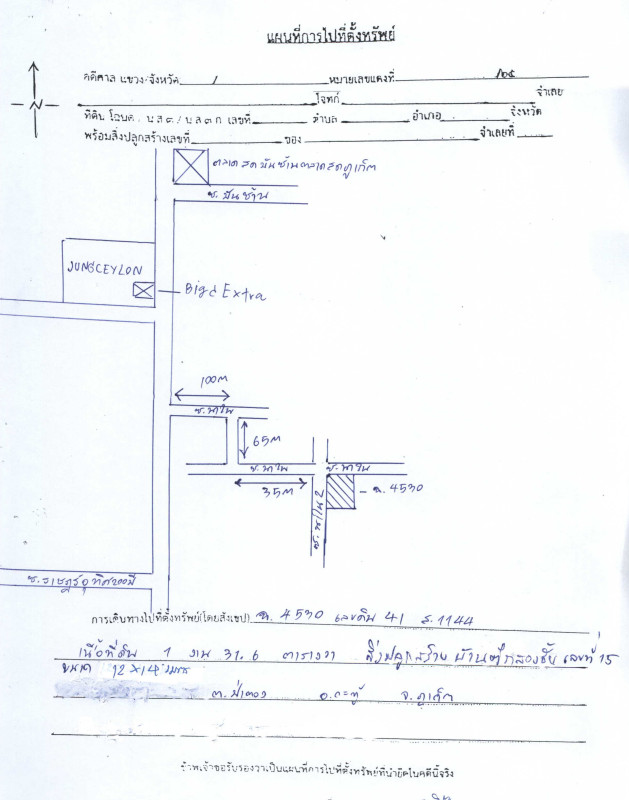 แผนที่การไปที่ตั้งทรัพย์
คดีศาล แขวง/จังหวัด / หมายเลขแดงที่
โจทก์ จำเลย
ที่ดิน โฉนด. นส๓./นส๓ก เลขที่ ตำบล อำเภอ จังหวัด
พร้อมสิ่งปลูกสร้างเลขที่ ของ จำเลยที่
N
ตลาดสดบันซ้านตลาดสดภูเก็ต
ซ. บันซ้าน
JUNGCEYLON
Big C Extra
100m
ซ.นาใน
65m
ซ.นาใน
ซ.นาใน
35m
ฉ. 4530
ซ.นาใน 2
ซ.ราษฎร์อุทิศ200ปี
การเดินทางไปที่ตั้งทรัพย์(โดยสังเขป) ฉ. 4530 เลขดิน 41 ส.1144
เนื้อที่ดิน 1 งาน 31.6 ตารางวา สิ่งปลูกสร้าง บ้านตึกสองชั้น เลขที่ 15
ขนาด 12x14 เมตร
ต.ป่าตอง อ.กะทู้ จ.ภูเก็ต
ข้าพเจ้าขอรับรองว่าเป็นแผนที่การไปที่ตั้งทรัพย์ที่นำยึดในคดีนี้จริง